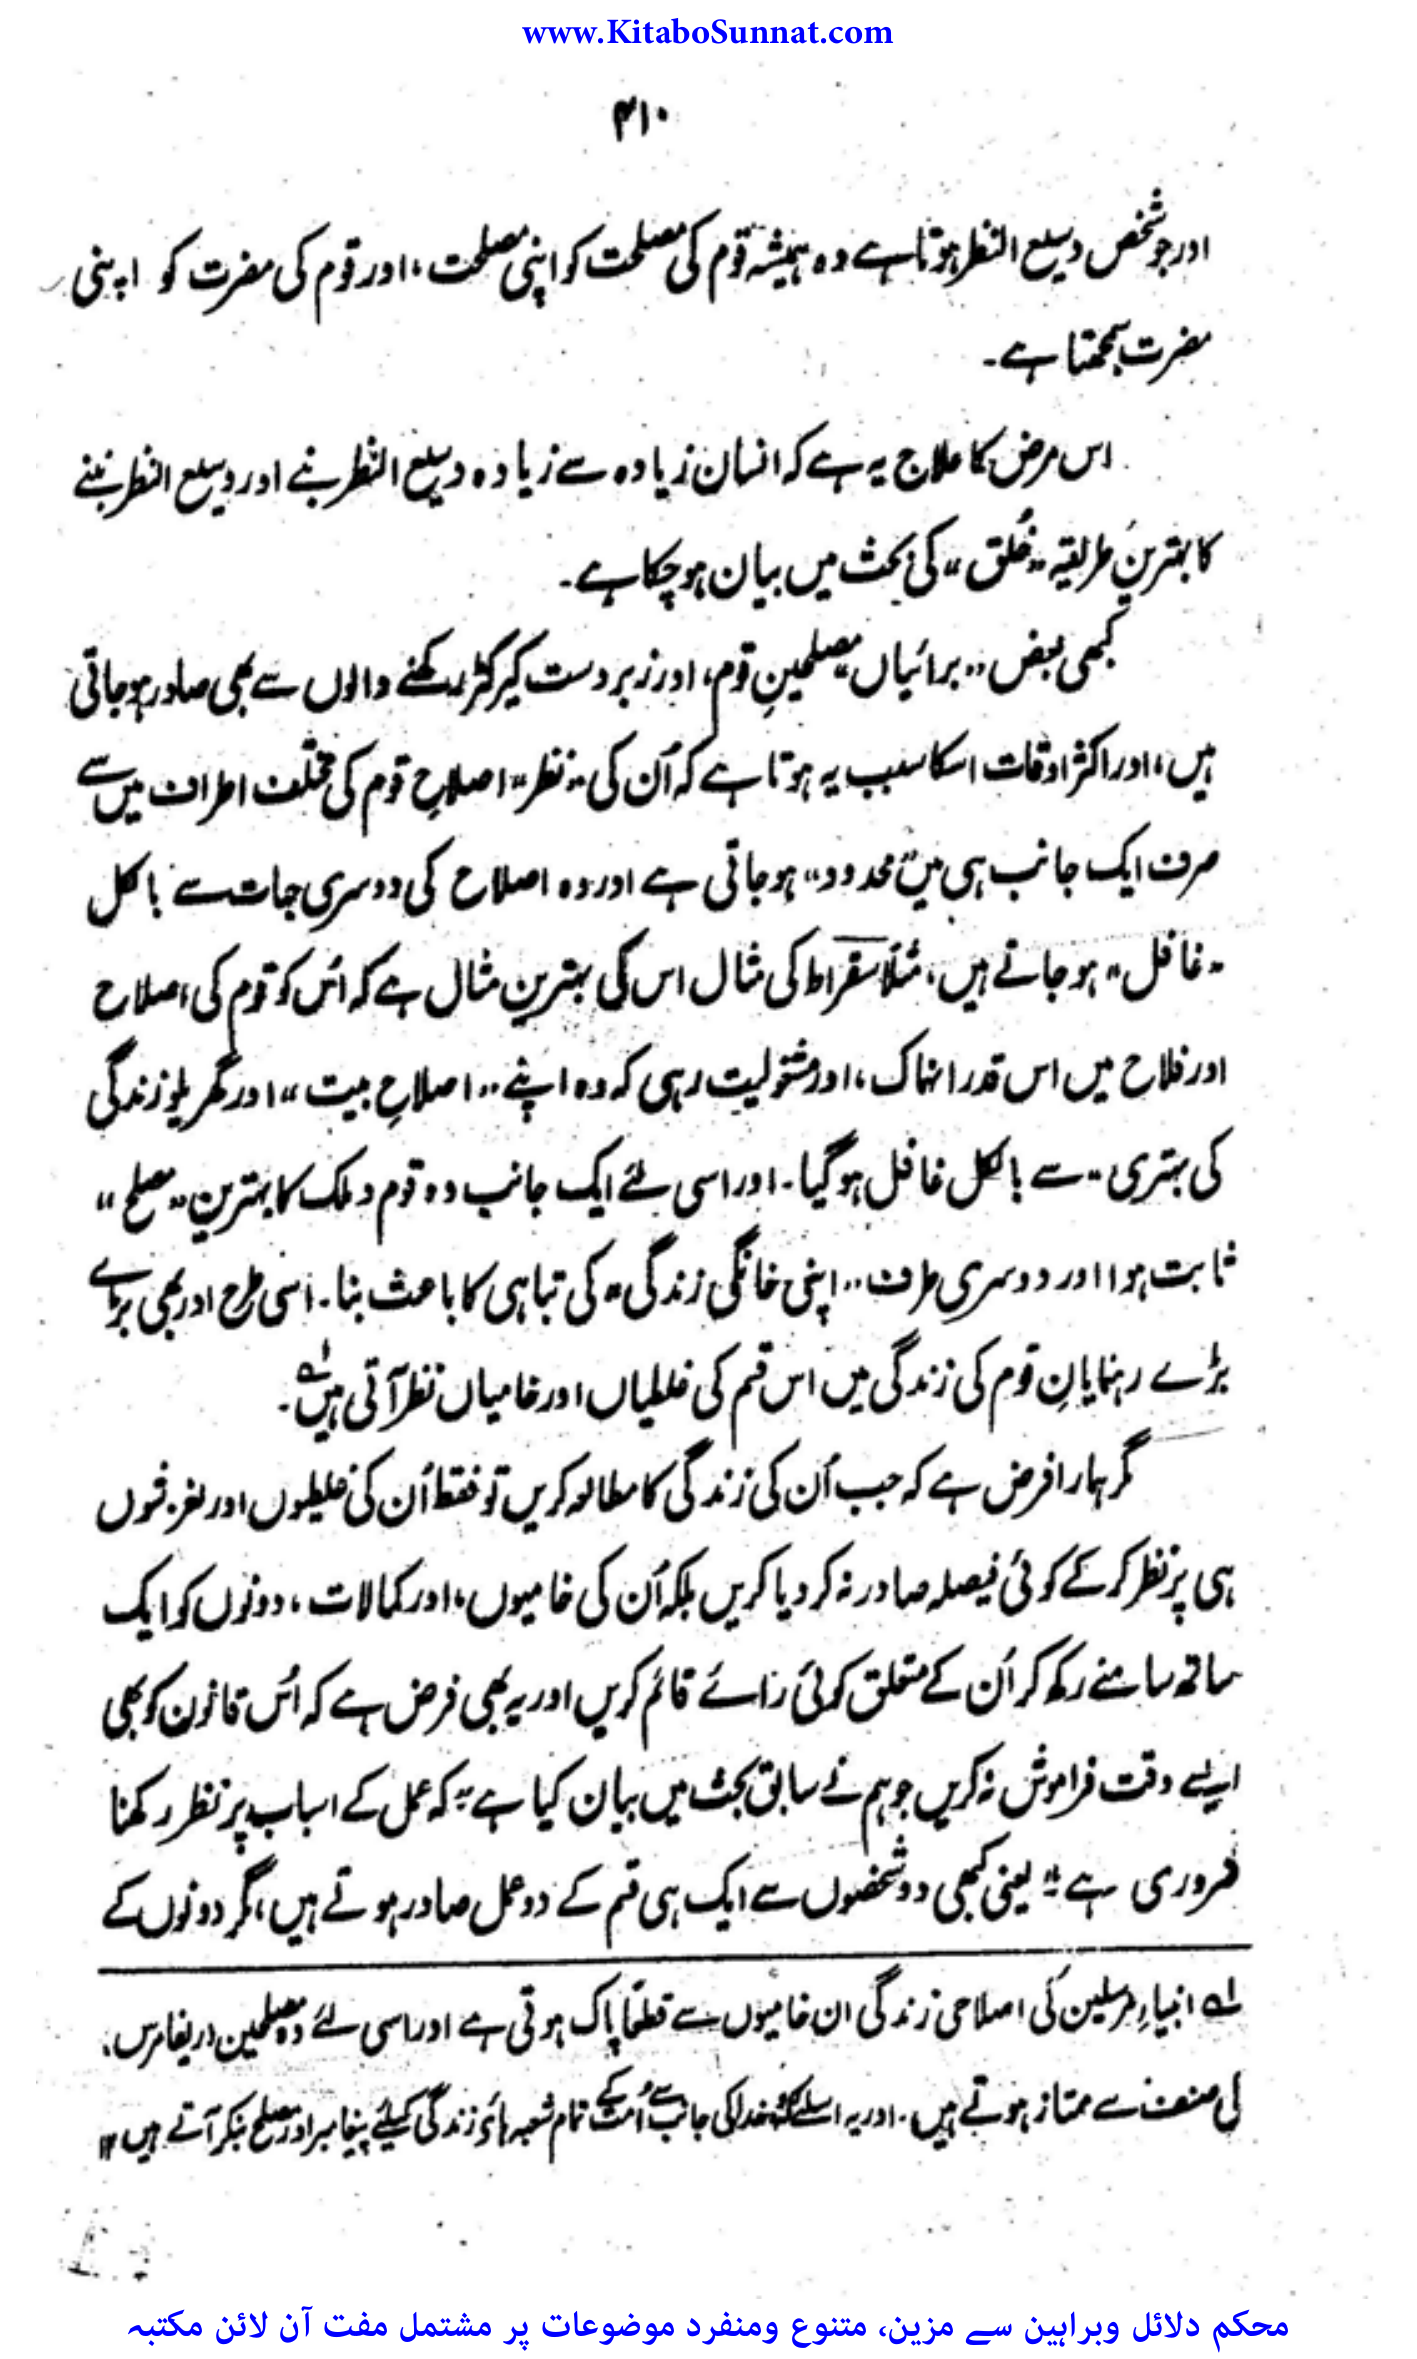 www.KitaboSunnat.com
۴۱۰
اور جو شخص وسیع النظر ہوتا ہے وہ ہمیشہ قوم کی مصلحت کو اپنی مصلحت، اور قوم کی مضرت کو اپنی
مضرت سمجھتا ہے۔
اس مرض کا علاج یہ ہے کہ انسان زیادہ سے زیادہ وسیع النظر بنے اور وسیع النظر بننے
کا بہترین طریقہ "خُلق" کی بحث میں بیان ہو چکا ہے۔
کبھی بعض "برائیاں" مصلحینِ قوم، اور زبردست کیرکٹر رکھنے والوں سے بھی صادر ہو جاتی
ہیں، اور اکثر اوقات اسکا سبب یہ ہوتا ہے کہ اُن کی "نظر" اصلاحِ قوم کی مختلف اطراف میں سے
صرف ایک جانب ہی میں "محدود" ہو جاتی ہے اور وہ اصلاح کی دوسری جہات سے بالکل
"غافل" ہو جاتے ہیں، مثلاً سقراط کی مثال اس کی بہترین مثال ہے کہ اُس کو قوم کی اصلاح
اور فلاح میں اس قدر انہماک، اور مشغولیت رہی کہ وہ اپنے "اصلاحِ بیت" اور گھریلو زندگی
کی بہتری" سے بالکل غافل ہو گیا۔ اور اسی لئے ایک جانب وہ قوم و ملک کا بہترین "مصلح"
ثابت ہوا اور دوسری طرف "اپنی خانگی زندگی" کی تباہی کا باعث بنا۔ اسی طرح اور بھی بڑے
بڑے رہنمایانِ قوم کی زندگی میں اس قسم کی غلطیاں اور خامیاں نظر آتی ہیں۔ لہ
مگر ہمارا فرض ہے کہ جب اُن کی زندگی کا مطالعہ کریں تو فقط اُن کی غلطیوں اور لغزشوں
ہی پر نظر کر کے کوئی فیصلہ صادر نہ کر دیا کریں بلکہ اُن کی خامیوں، اور کمالات، دونوں کو ایک
ساتھ سامنے رکھ کر اُن کے متعلق کوئی رائے قائم کریں اور یہ بھی فرض ہے کہ اُس قانون کو بھی
ایسے وقت فراموش نہ کریں جو ہم نے سابق بحث میں بیان کیا ہے "کہ عمل کے اسباب پر نظر رکھنا
ضروری ہے" یعنی کبھی دو شخصوں سے ایک ہی قسم کے دو عمل صادر ہوتے ہیں، مگر دونوں کے
لہ انبیاءِ مرسلین کی اصلاحی زندگی ان خامیوں سے قطعاً پاک ہوتی ہے اور اسی لئے وہ مصلحین دریفارمرس،
کی صنف سے ممتاز ہوتے ہیں۔ اور یہ اسلئے کہ وہ خدا کی جانب سے اُمت کے تمام شعبہ ہائے زندگی کیلئے پیغامبر اور مصلح بنکر آتے ہیں ۱۲
محکم دلائل وبراہین سے مزین، متنوع ومنفرد موضوعات پر مشتمل مفت آن لائن مکتبہ